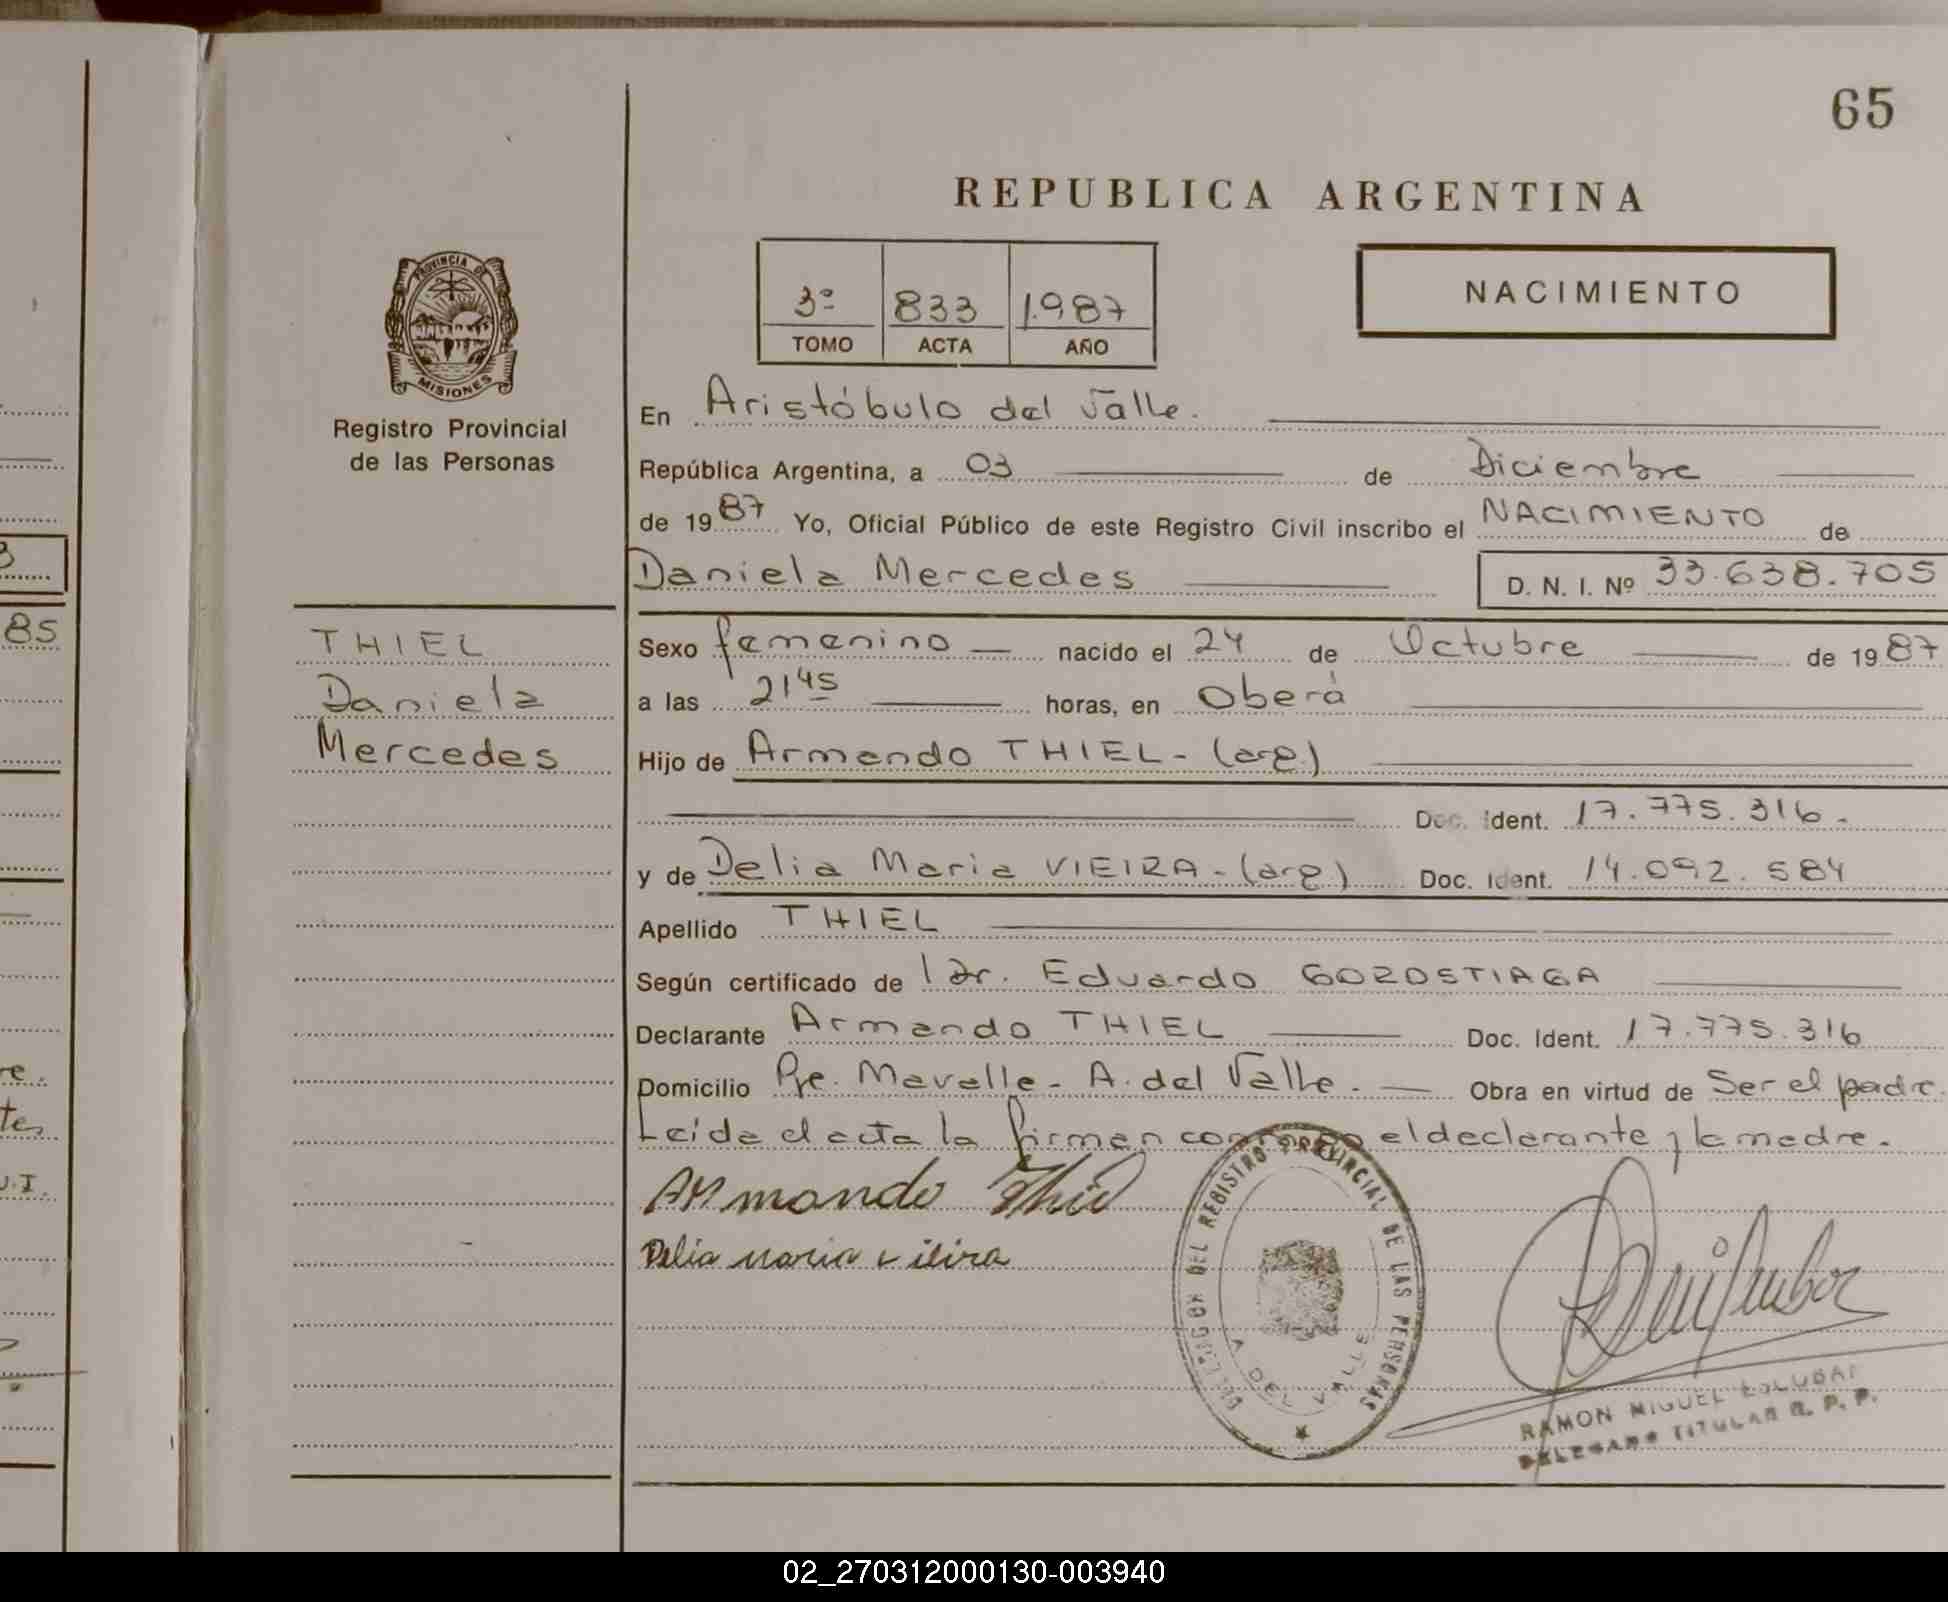 65
REPUBLICA ARGENTINA
PROVINCIA DE MISIONES
Registro Provincial
de las Personas
3º 833 1.987
TOMO ACTA AÑO
NACIMIENTO
En Aristóbulo del Valle.
República Argentina, a 03 de Diciembre
de 1987 Yo, Oficial Público de este Registro Civil inscribo el NACIMIENTO de
Daniela Mercedes D. N. I. Nº 33.638.705
THIEL
Daniela
Mercedes
Sexo femenino nacido el 24 de Octubre de 1987
a las 21 45 horas, en Oberá
Hijo de Armando THIEL - (arg.)
Doc. Ident. 17.775.316.
y de Delia Maria VIEIRA - (arg.) Doc. Ident. 14.092.584
Apellido THIEL
Según certificado de Dr. Eduardo GOROSTIAGA
Declarante Armando THIEL Doc. Ident. 17.775.316
Domicilio Pje. Mavalle - A. del Valle. Obra en virtud de Ser el padre.
Leida el acta la firman el declarante y la madre.
Armando Thiel
Delia maria vieira
DELEGACION DEL REGISTRO PROVINCIAL DE LAS PERSONAS
A. DEL VALLE
RAMON MIGUEL
DELEGADO TITULAR R. P. P.
85
re.
te,
02_270312000130-003940